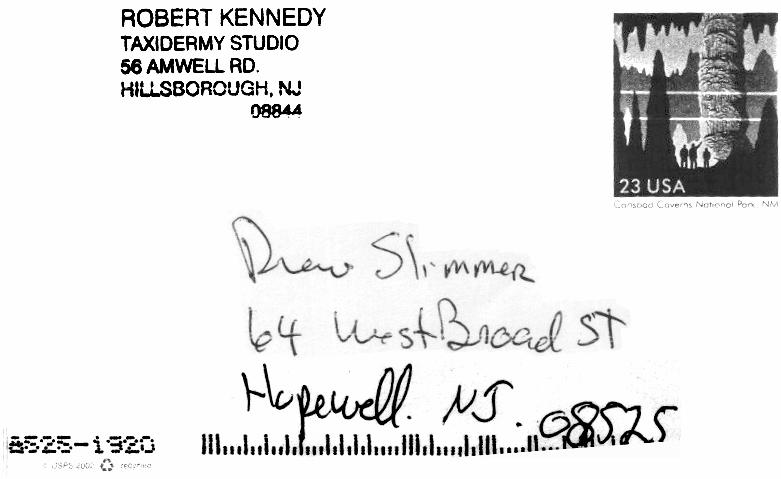 ROBERT KENNEDY
TAXIDERMY STUDIO
56 AMWELL RD.
HILLSBOROUGH, NJ
08844
23 USA
Carlsbad Caverns National Park, NM
Drew Slimmer
64 West Broad ST
Hopewell. NJ. 08525
8525-1920
© USPS 2002 recycled